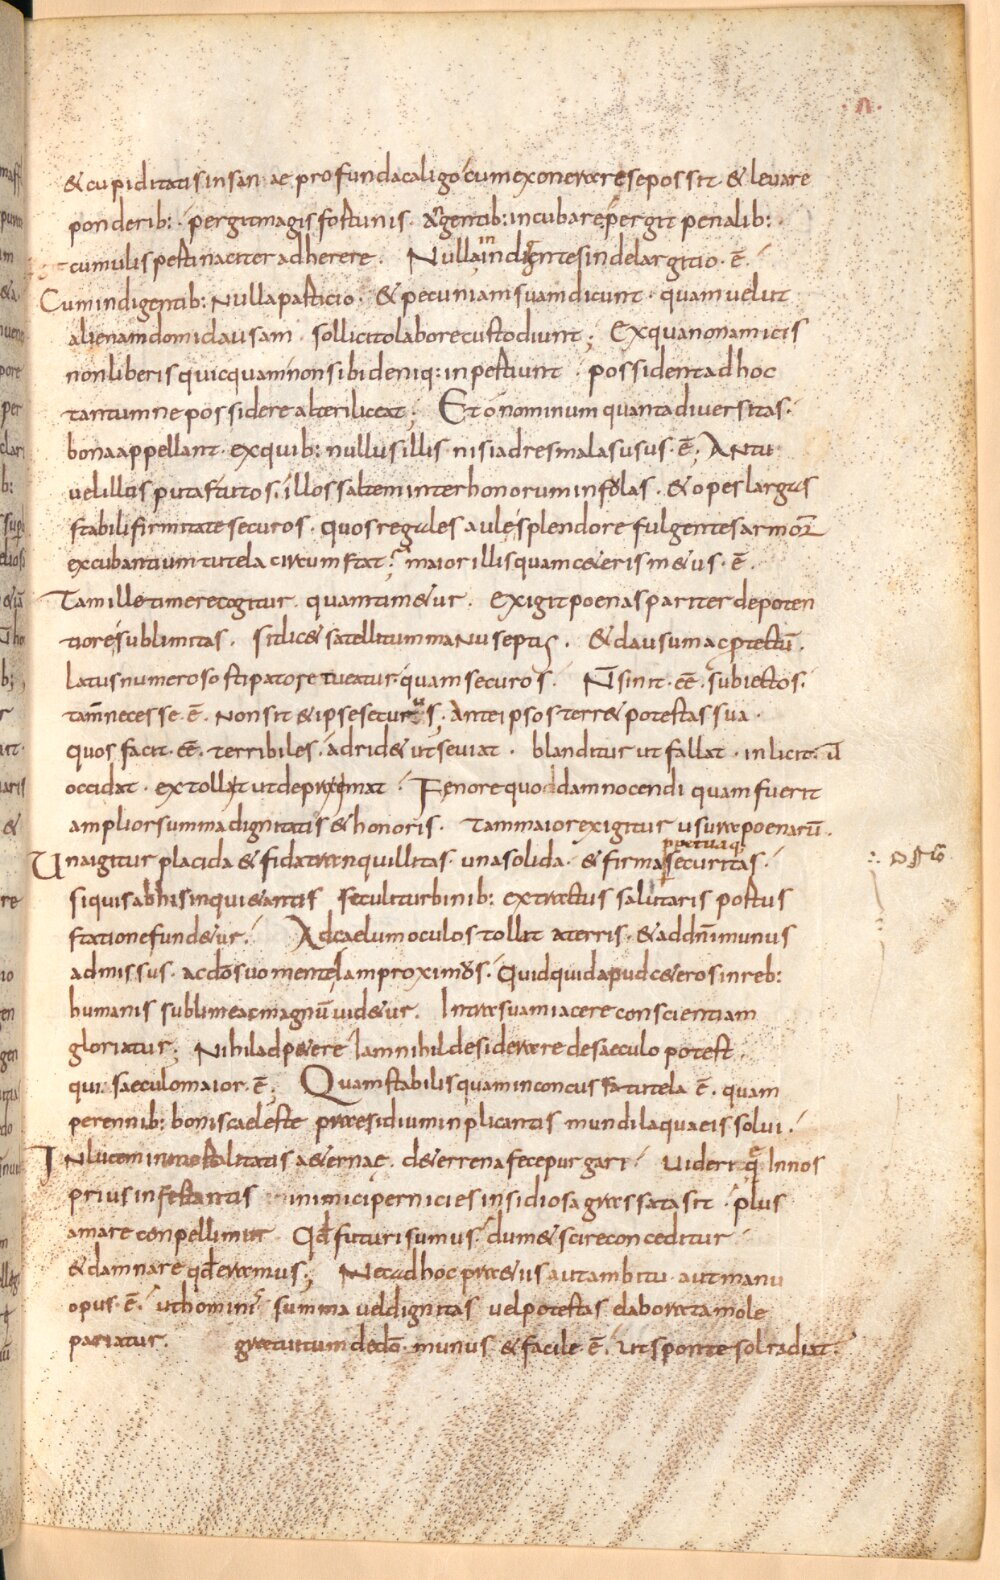 ·A·
& cupiditatis insanae profunda caligo cum exonerare se possit & levare
ponderib: pergit magis fortunis argentib: incubare pergit penalib:
cumulis pertinaciter adherere. Nulla in indigentes inde largitio · ē̄
Cum indigentib: nulla partitio · & pecuniam suam dicunt · quam velut
alienam domi clausam · sollicito labore custodiunt; Ex qua non amicis
non liberis quicquam non sibi deniq: inpertiunt · possident ad hoc
tantum ne possidere alteri liceat; Et o nominum quanta diversitas ·
bona appellant · ex quib: nullus illis · nisi ad res malas usus · ē; An tu
vel illos putas tutos · illos saltem inter honorum infulas · & opes largas
stabili firmitate securos · quos regales aule splendore fulgentes armoꝝ
excubantium tutela circumstat; maior illis quam c&eris m&us · ē ·
Tam ille timere cogitur · quam tim&ur · exigit poenas pariter de poten
tiore sublimitas · sit lic& satellitum manu septus · & clausum ac ꝓtectū ·
latus numeroso stipatore tueatur · quam securos · N̄ sinit · eē · subiectos ·
tam̄ necesse · ē · non sit & ipse securus; Ante ipsos terr& potestas sua ·
quos facit · eē · terribiles · adrid& ut seviat · blanditur ut fallat · inlicit · ū
occidat · extollit ut depraemat · Fenore quoddam nocendi quam fuerit
amplior summa dignitatis & honoris · tam maior exigitur usura poenarū ·
ppetuaq:
Una igitur placida & fida tranquillitas · una solida · & firma securitas ·
si quis ab his inqui&antis seculi turbinib: extractus salutaris portus
statione fund&ur · Ad caelum oculos tollit a terris · & ad dn̄i munus
admissus · ac dō suo mente iam proximus · Quidquid apud c&eros in reb:
humanis sublime ac magnū vid&ur · Intra suam iacere conscientiam
gloriatur; Nihil adp&ere iam nihil desiderare de saeculo potest ·
qui saeculo maior · ē; Quam stabilis quam inconcussa tutela · ē · quam
perennib: bonis caeleste praesidium inplicantis mundi laquaeis solui ·
In lucem inmortalitatis a&ernae · de terrena fece purgari · Videri q; in nos
prius infestantis inimici pernicies insidiosa grassata sit · plus
amare conpellimur Qd̄ futuri sumus · dum & scire conceditur
& damnare qd̄ eramus; Nec ad hoc prae&iis aut ambitu · aut manu
opus · ē · ut hominis summa vel dignitas vel potestas elaborata mole
pariatur · gratuitum de dō munus & facile · ē · ut sponte sol radiat ·